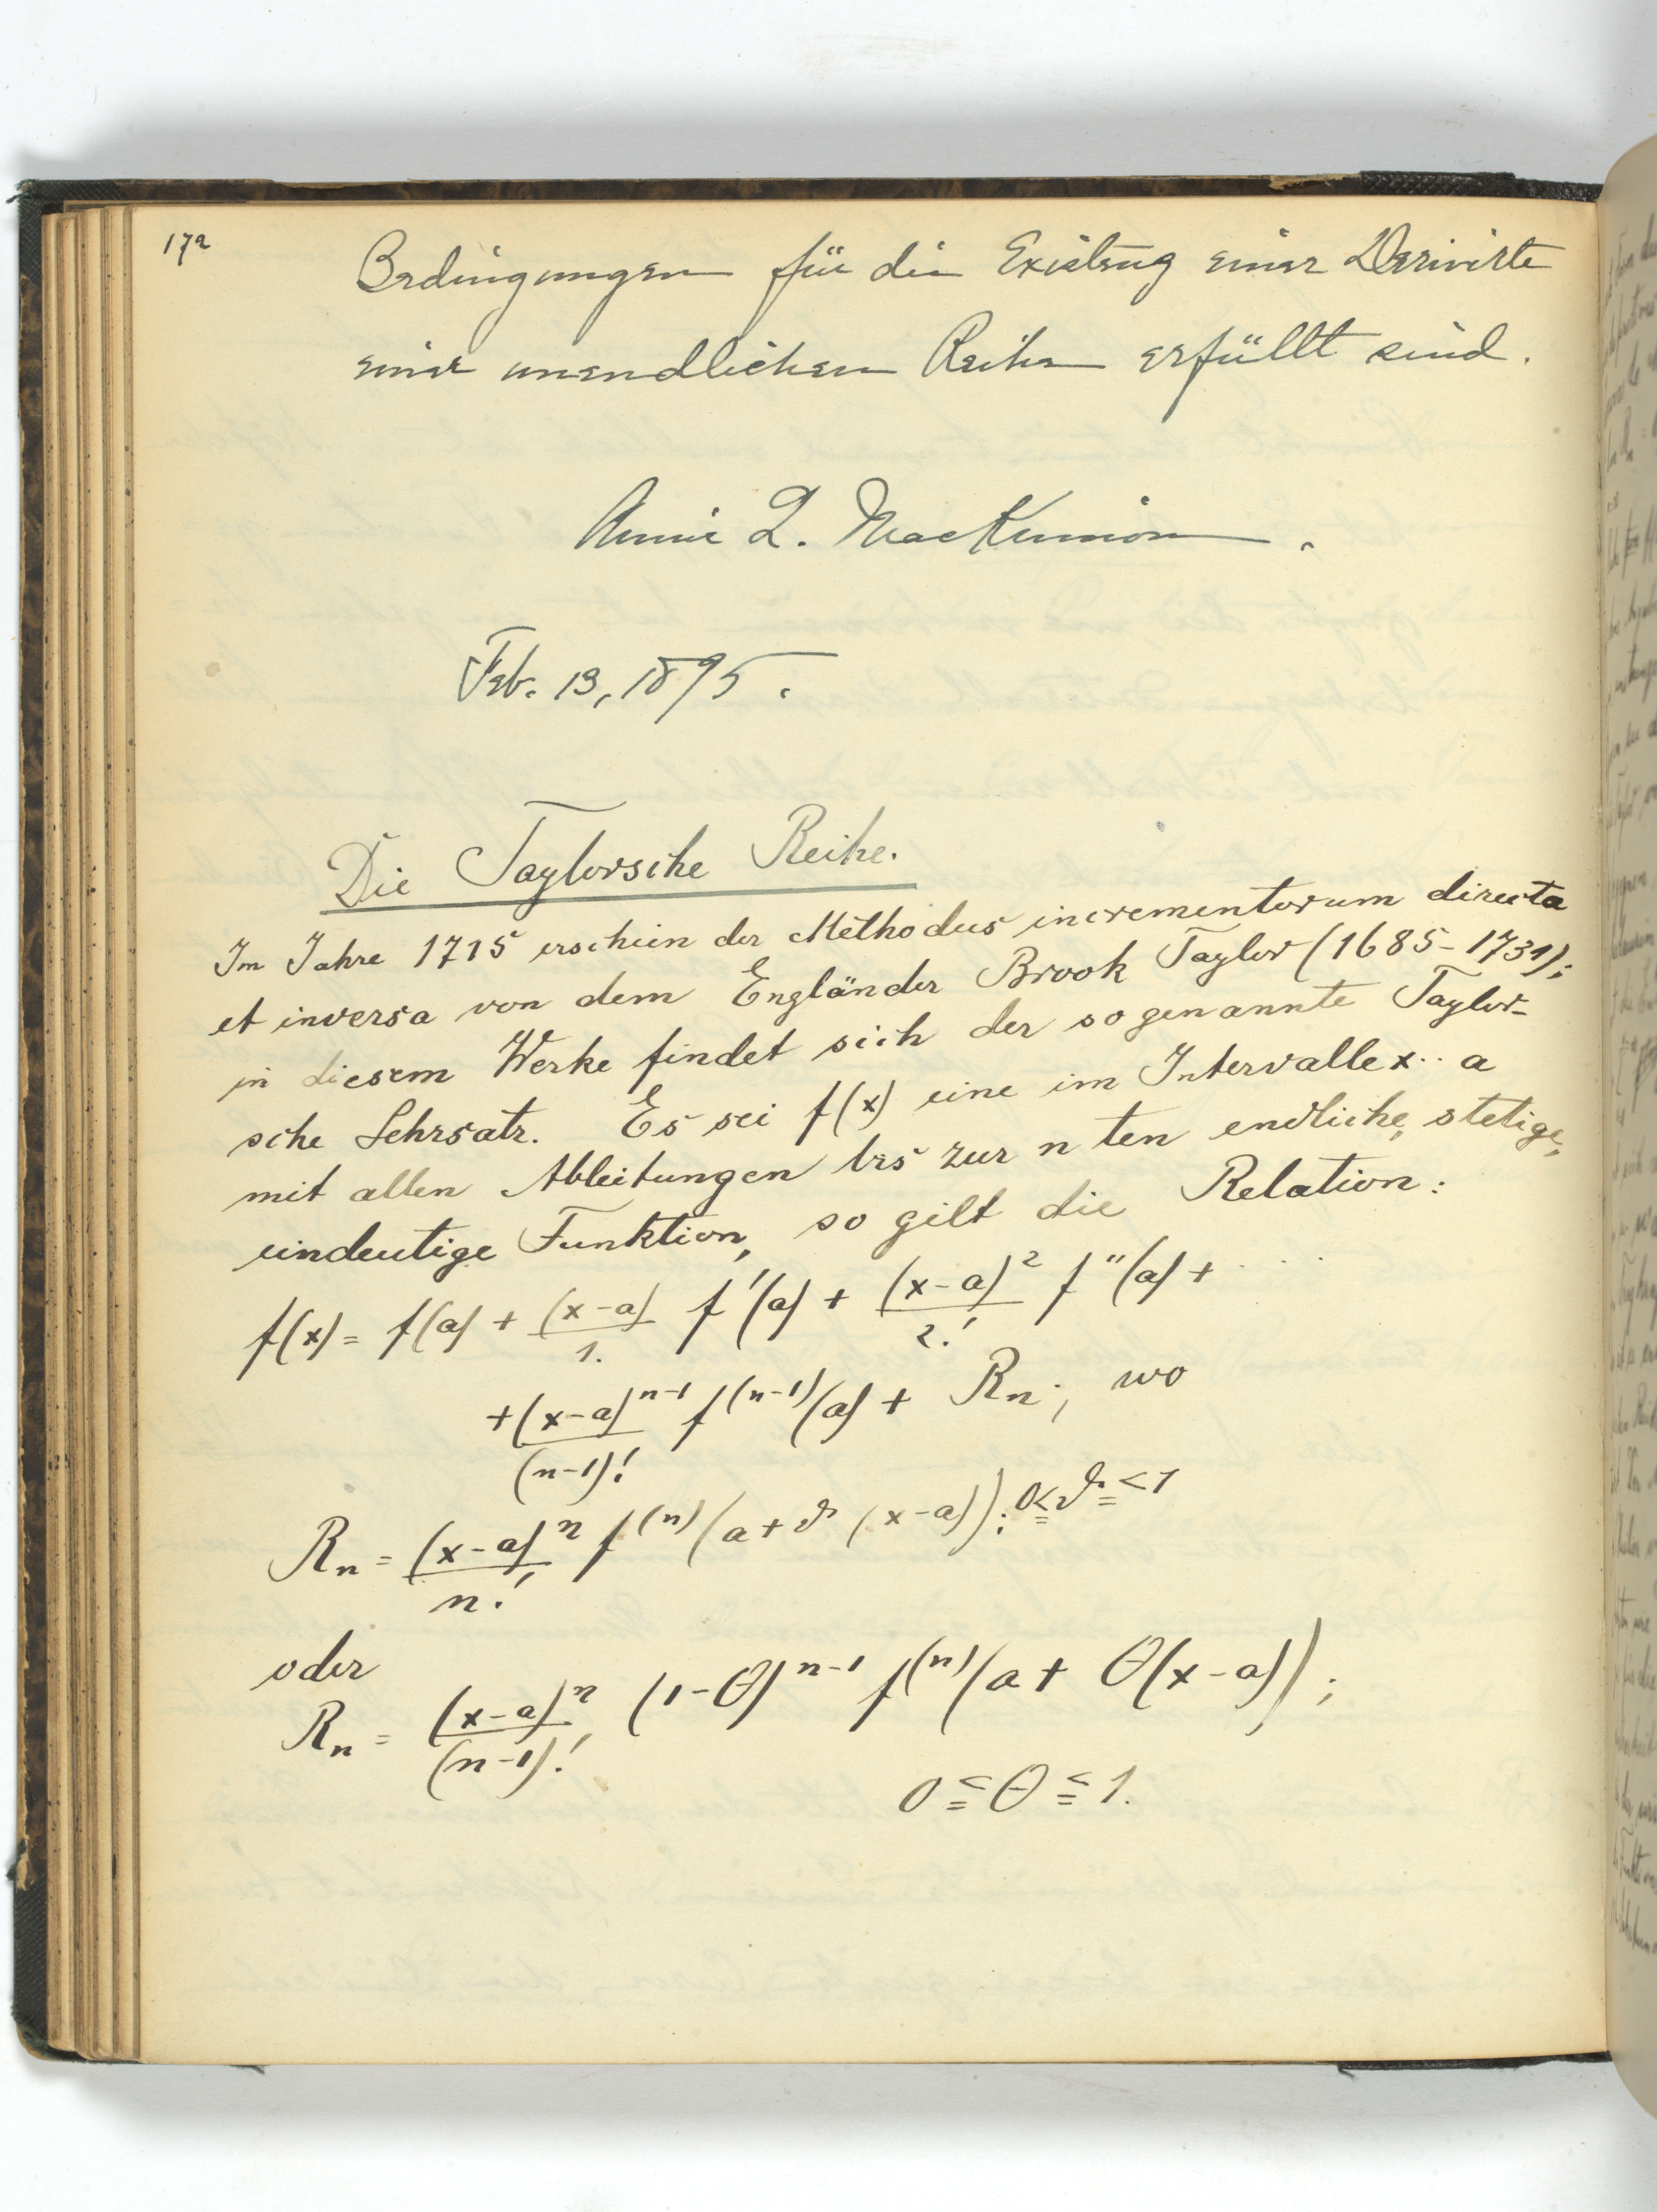 172
Bedingungen für die Existenz einer Derivirte
einer unendlichen Reihe erfüllt sind.
Annie L. MacKinnon.
Feb. 13, 1895.
Die Taylorsche Reihe.
Im Jahre 1715 erschein der Methodus incrementorum directa
et inversa von dem Engländer Brook Taylor (1685-1731);
in diesem Werke findet sich der sogenannte Taylor-
sche Lehrsatz. Es sei f(x) eine im Intervalle x·· a
mit allen Ableitungen bis zur n ten endliche, stetige,
eindeutige Funktion, so gilt die Relation:
f(x) = f(a) + (x-a)/1. f'(a) + (x-a)²/2! f''(a) + ····
+ (x-a)^{n-1}/(n-1)! f^{(n-1)}(a) + Rn; wo
Rn = (x-a)^n/n! f^{(n)}(a+ϑ(x-a)); 0≤ϑ≤1
oder
Rn = (x-a)^n/(n-1)! (1-θ)^{n-1} f^{(n)}(a+θ(x-a));
0≤θ≤1.